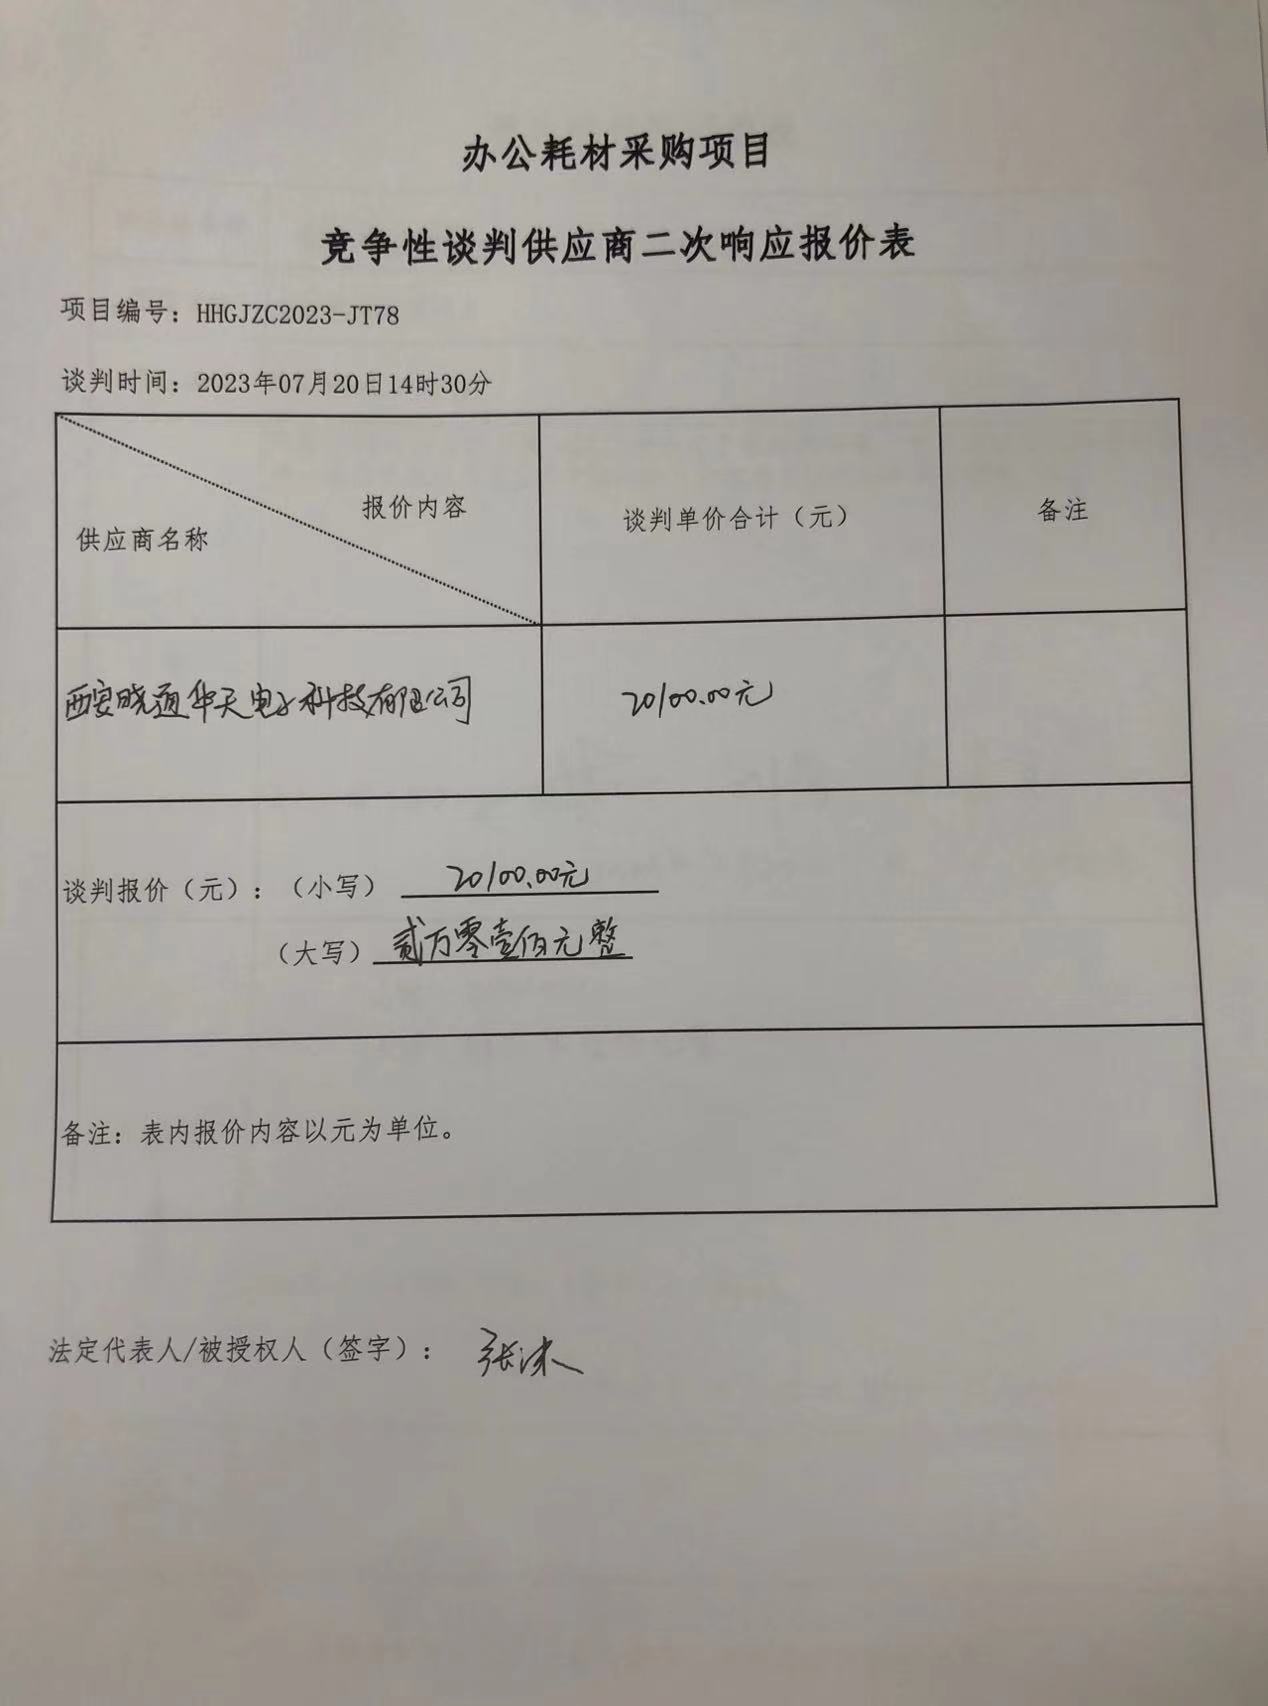 办公耗材采购项目
竞争性谈判供应商二次响应报价表
项目编号：HHGJZC2023-JT78
谈判时间：2023年07月20日14时30分
报价内容
供应商名称
谈判单价合计（元）
备注
西安晓通华天电子科技有限公司
20100.00元
谈判报价（元）：（小写）20100.00元
（大写）贰万零壹佰元整
备注：表内报价内容以元为单位。
法定代表人/被授权人（签字）：张沫